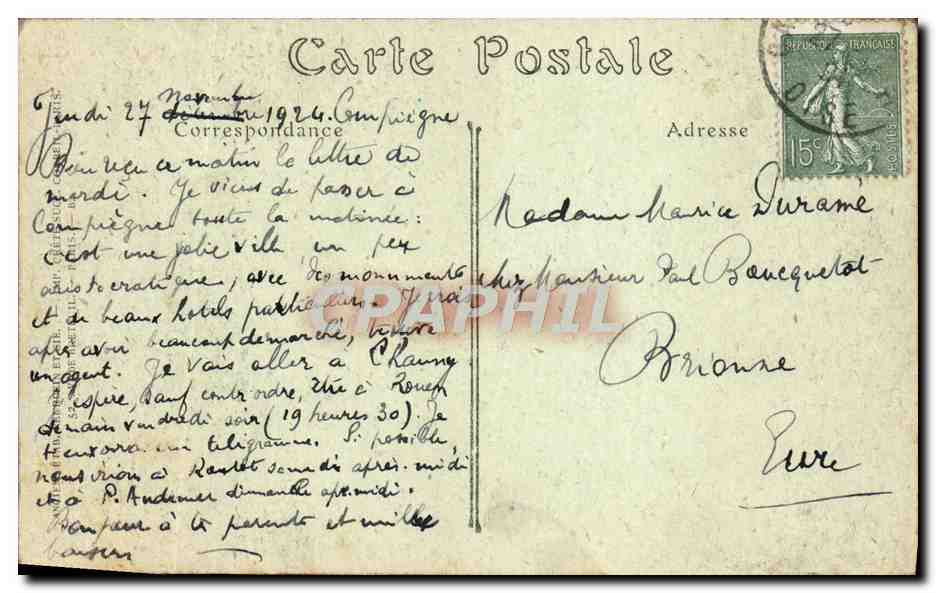 Carte Postale
REPUBLIQUE FRANÇAISE
15c
POSTES
OISE
Correspondance
Adresse
Jeudi 27 novembre 1924. Compiègne
Bien reçu ce matin la lettre de
mardi. Je viens de passer à
Compiègne toute la matinée :
c'est une jolie ville un peu
aristocratique, avec des monuments
et de beaux hotels particuliers. Je crois
après avoir beaucoup démarché, trouvé
un agent. Je vais aller à Chauny
espère, sauf contrordre, être à Rouen
demain vendredi soir (19 heures 30). Je
t'enverrai un télégramme. Si possible,
nous irions à Routot samedi après-midi
et à P. Audemer dimanche apr. midi.
Bonjour à tes parents et mille
baisers
Madame Maurice Duramé
chez Monsieur Paul Boucquetot
Brionne
Eure
CPAPHIL